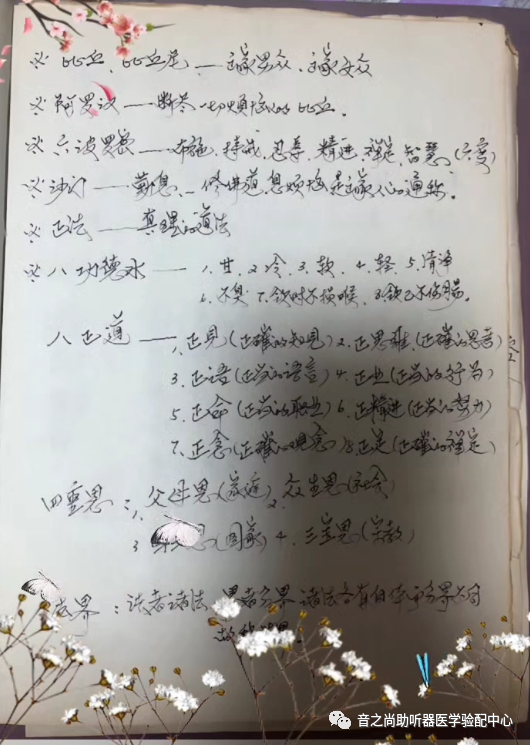 ※ 比丘、比丘尼——出家男众、出家女众
※ 阿罗汉——断尽一切烦恼的比丘。
※ 六波罗蜜——布施、持戒、忍辱、精进、禅定、智慧、(六度)
※ 沙门——勤息、修佛道、息烦恼是出家人的通称。
※ 正法——真理的道法
※ 八功德水——1.甘 2.冷 3.软 4.轻 5.清净
6.不臭 7.饮时不损喉 8.饮已不伤肠。
八正道——1.正见(正确的知见) 2.正思维(正确的思考)
3.正语(正当的语言) 4.正业(正当的行为)
5.正命(正当的职业) 6.正精进(正当的努力)
7.正念(正确的观念) 8.正定(正确的禅定)
四重恩：1.父母恩(家庭) 2.众生恩(社会)
3 恩(国家) 4.三宝恩(宗教)
法界：法者诸法 界者分界 诸法各有自体而分界不同
故称法界。
音之尚助听器医学验配中心